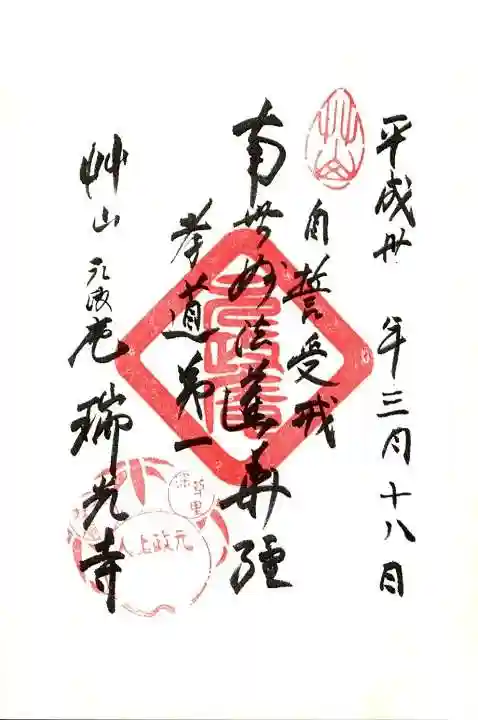 平成卅年三月十八日
自誓受戒
南無妙法蓮華経
孝道第一
艸山元政庵瑞光寺
艸山
深草里
元政上人